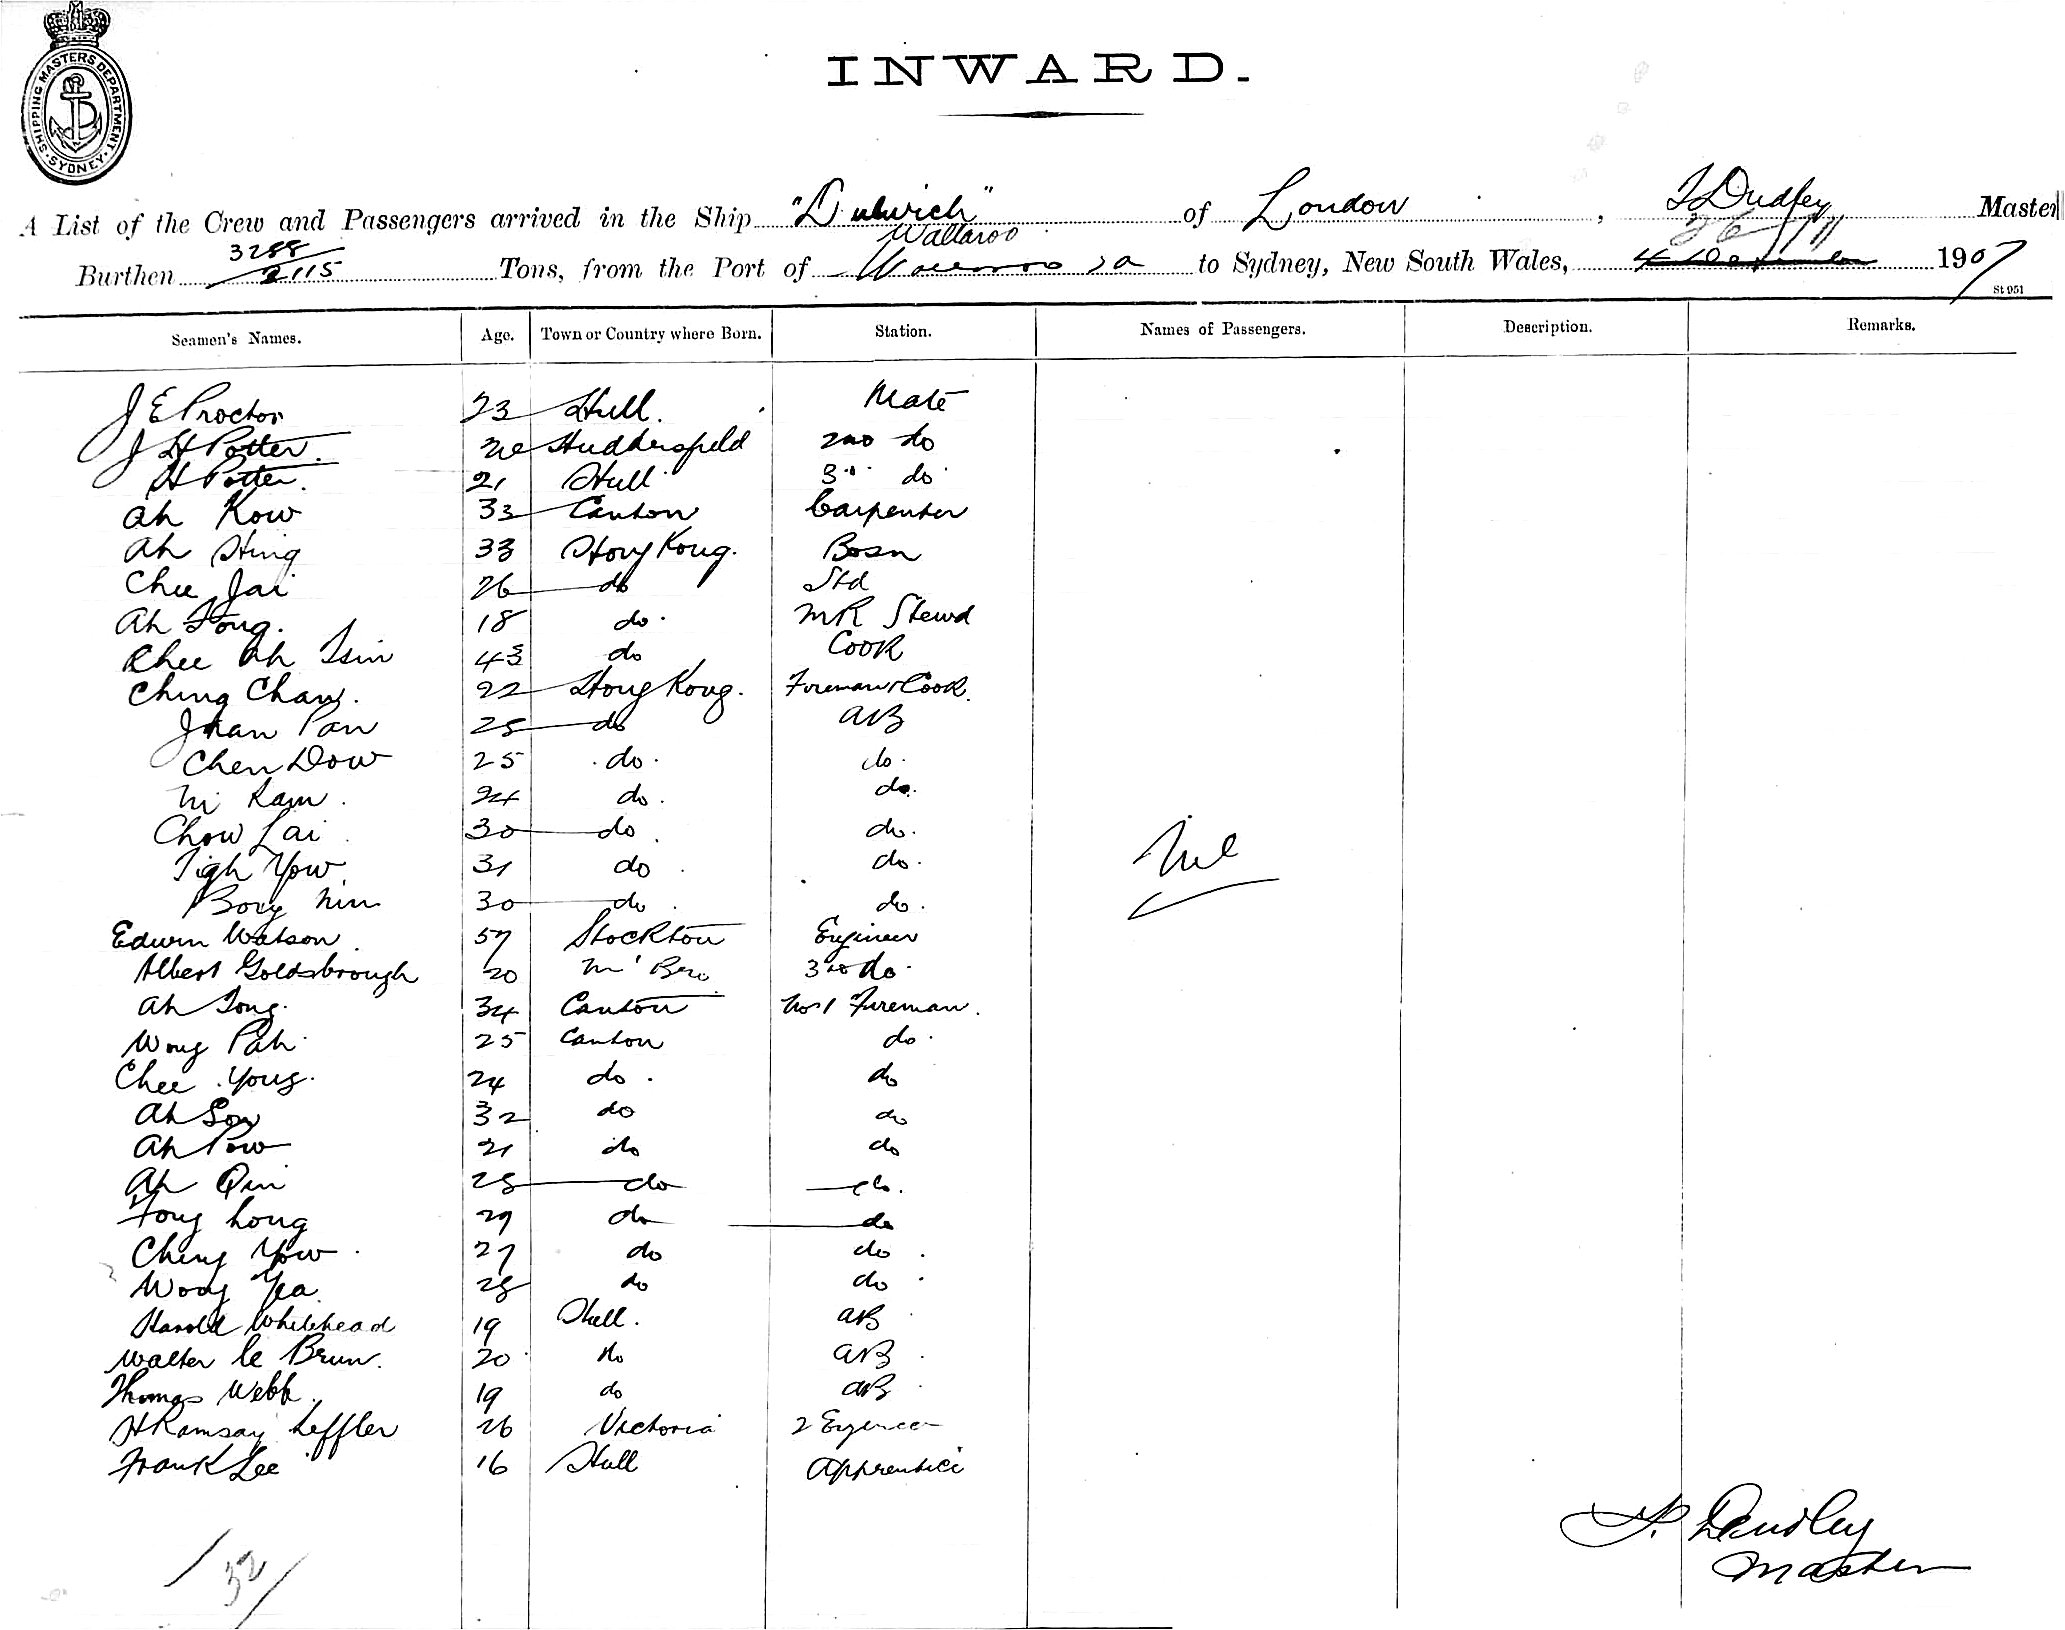 SHIPPING MASTERS DEPARTMENT · SYDNEY ·
INWARD.
A List of the Crew and Passengers arrived in the Ship "Dulwich" of London, Dudley Master
Wallaroo 26/11
Burthen 3288/2115 Tons, from the Port of to Sydney, New South Wales, 1907
St 951
Seamen's Names. Age. Town or Country where Born. Station. Names of Passengers. Description. Remarks.
J E Proctor 23 Hull. Mate
J H Potter. Huddersfield 2nd do
H Potter. 21 Hull 3rd do
Ah Kow 33 Canton Carpenter
Ah Hing 33 Hong Kong. Bosn
Chee Jai 26 do Std
Ah Fong. 18 do. MR Stewd
Chee Ah Tsin 43 do Cook
Ching Chaw. 22 Hong Kong. Fireman's Cook.
Pan 25 do AB
Chen Dow 25 do. do.
Ni Kam. 24 do. do.
Chow Lai 30 do. do.
Tigh Yow 31 do. do.
Bory Nim 30 do. do.
Nil
Edwin Watson. 57 Stockton Engineer
Albert Goldsbrough 20 M'Bro 3rd do.
Ah Tong. 34 Canton No 1 Fireman.
Wong Pah. 25 Canton do.
Chee Yong. 24 do. do
Ah Soy 32 do do
Ah Pow 21 do do
Ah Qui 28 do do.
Fong Long 29 do do
Cheng Yow. 27 do do.
Wong Yea. 28 do do.
Harold Whitehead 19 Hull. AB
Walter le Brun. 20 do AB
Thomas Webb. 19 do AB
H Ramsay Leffler 26 Victoria 2 Engineer
Frank Lee 16 Hull Apprentice
Dudley
Master
32